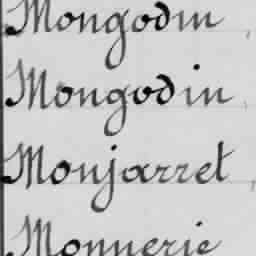 Mongodin
Mongodin
Monjarret
Monnerie